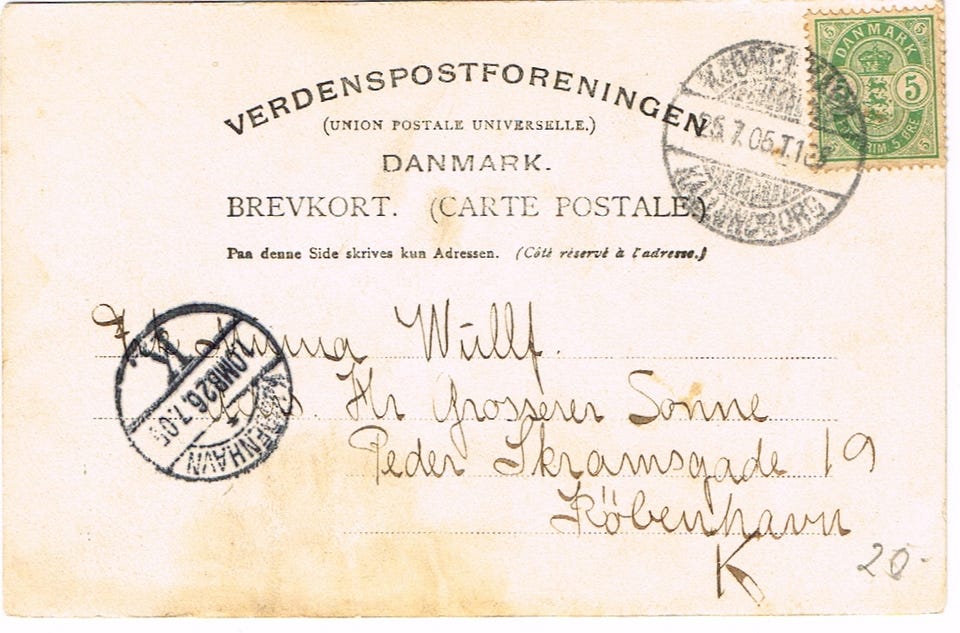 VERDENSPOSTFORENINGEN
(UNION POSTALE UNIVERSELLE.)
DANMARK.
BREVKORT. (CARTE POSTALE.)
Paa denne Side skrives kun Adressen. (Côté réservé à l'adresse.)
DANMARK
5 5
5
5 5
KALUNDBORG
K
10MB 26.7.05
KJØBENHAVN
Frk Minna Wullf.
Hr Grosserer Sonne
Peder Skramsgade 19
Köbenhavn
K
20-